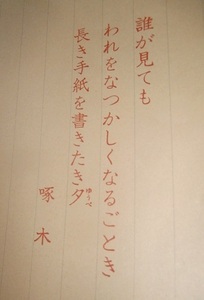 誰が見ても
われをなつかしくなるごとき
長き手紙を書きたき夕
ゆうべ
啄木